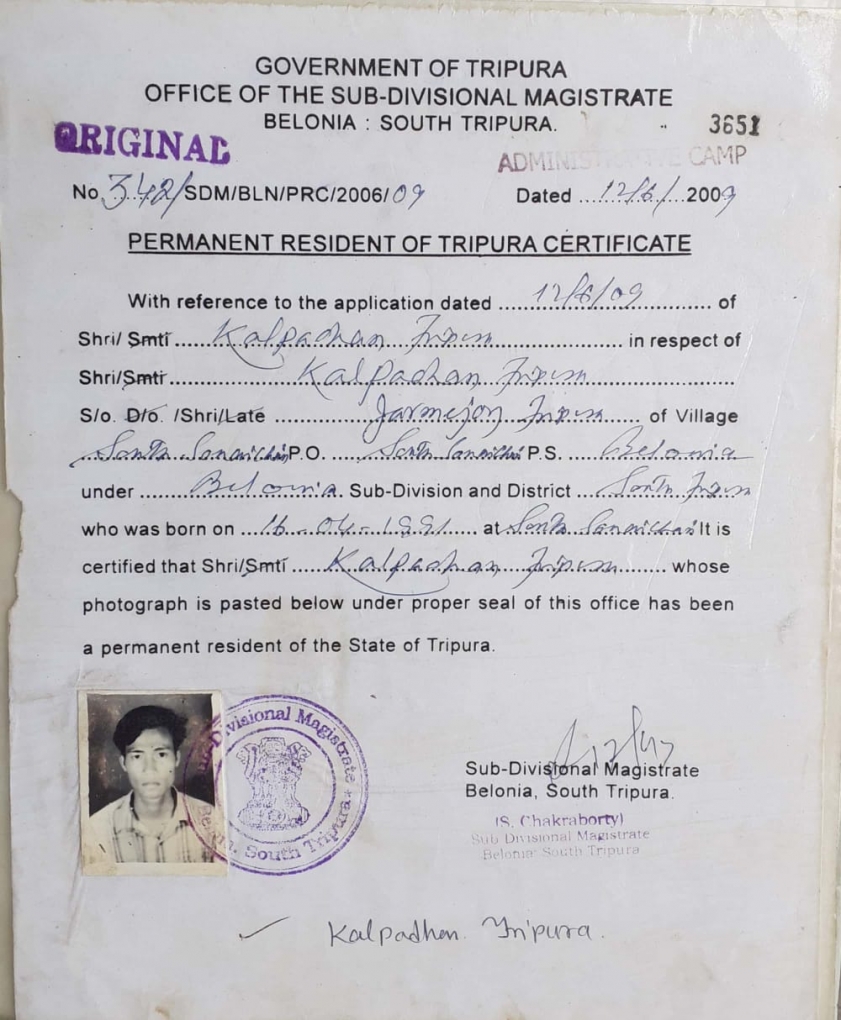 GOVERNMENT OF TRIPURA
OFFICE OF THE SUB-DIVISIONAL MAGISTRATE
BELONIA : SOUTH TRIPURA.
3651
ORIGINAL
ADMINISTRATIVE CAMP
No. 342/SDM/BLN/PRC/2006/09 Dated ...12/6/...2009
PERMANENT RESIDENT OF TRIPURA CERTIFICATE
With reference to the application dated ...12/6/09... of
Shri/ Smti ...Kalpadhan Tripura... in respect of
Shri/Smti ...Kalpadhan Tripura...
S/o. D/o. /Shri/Late ...Jarmejoy Tripura... of Village
...South Sonaichari P.O. ...South Sonaichari P.S. ...Belonia
under ...Belonia. Sub-Division and District ...South Tripura
who was born on ...16-04-1991... at South Sonaichari It is
certified that Shri/Smti ...Kalpadhan Tripura... whose
photograph is pasted below under proper seal of this office has been
a permanent resident of the State of Tripura.
Sub-Divisional Magistrate
Belonia, South Tripura
Sub-Divisional Magistrate
Belonia, South Tripura.
(S. Chakraborty)
Sub Divisional Magistrate
Belonia South Tripura
Kalpadhan Tripura.